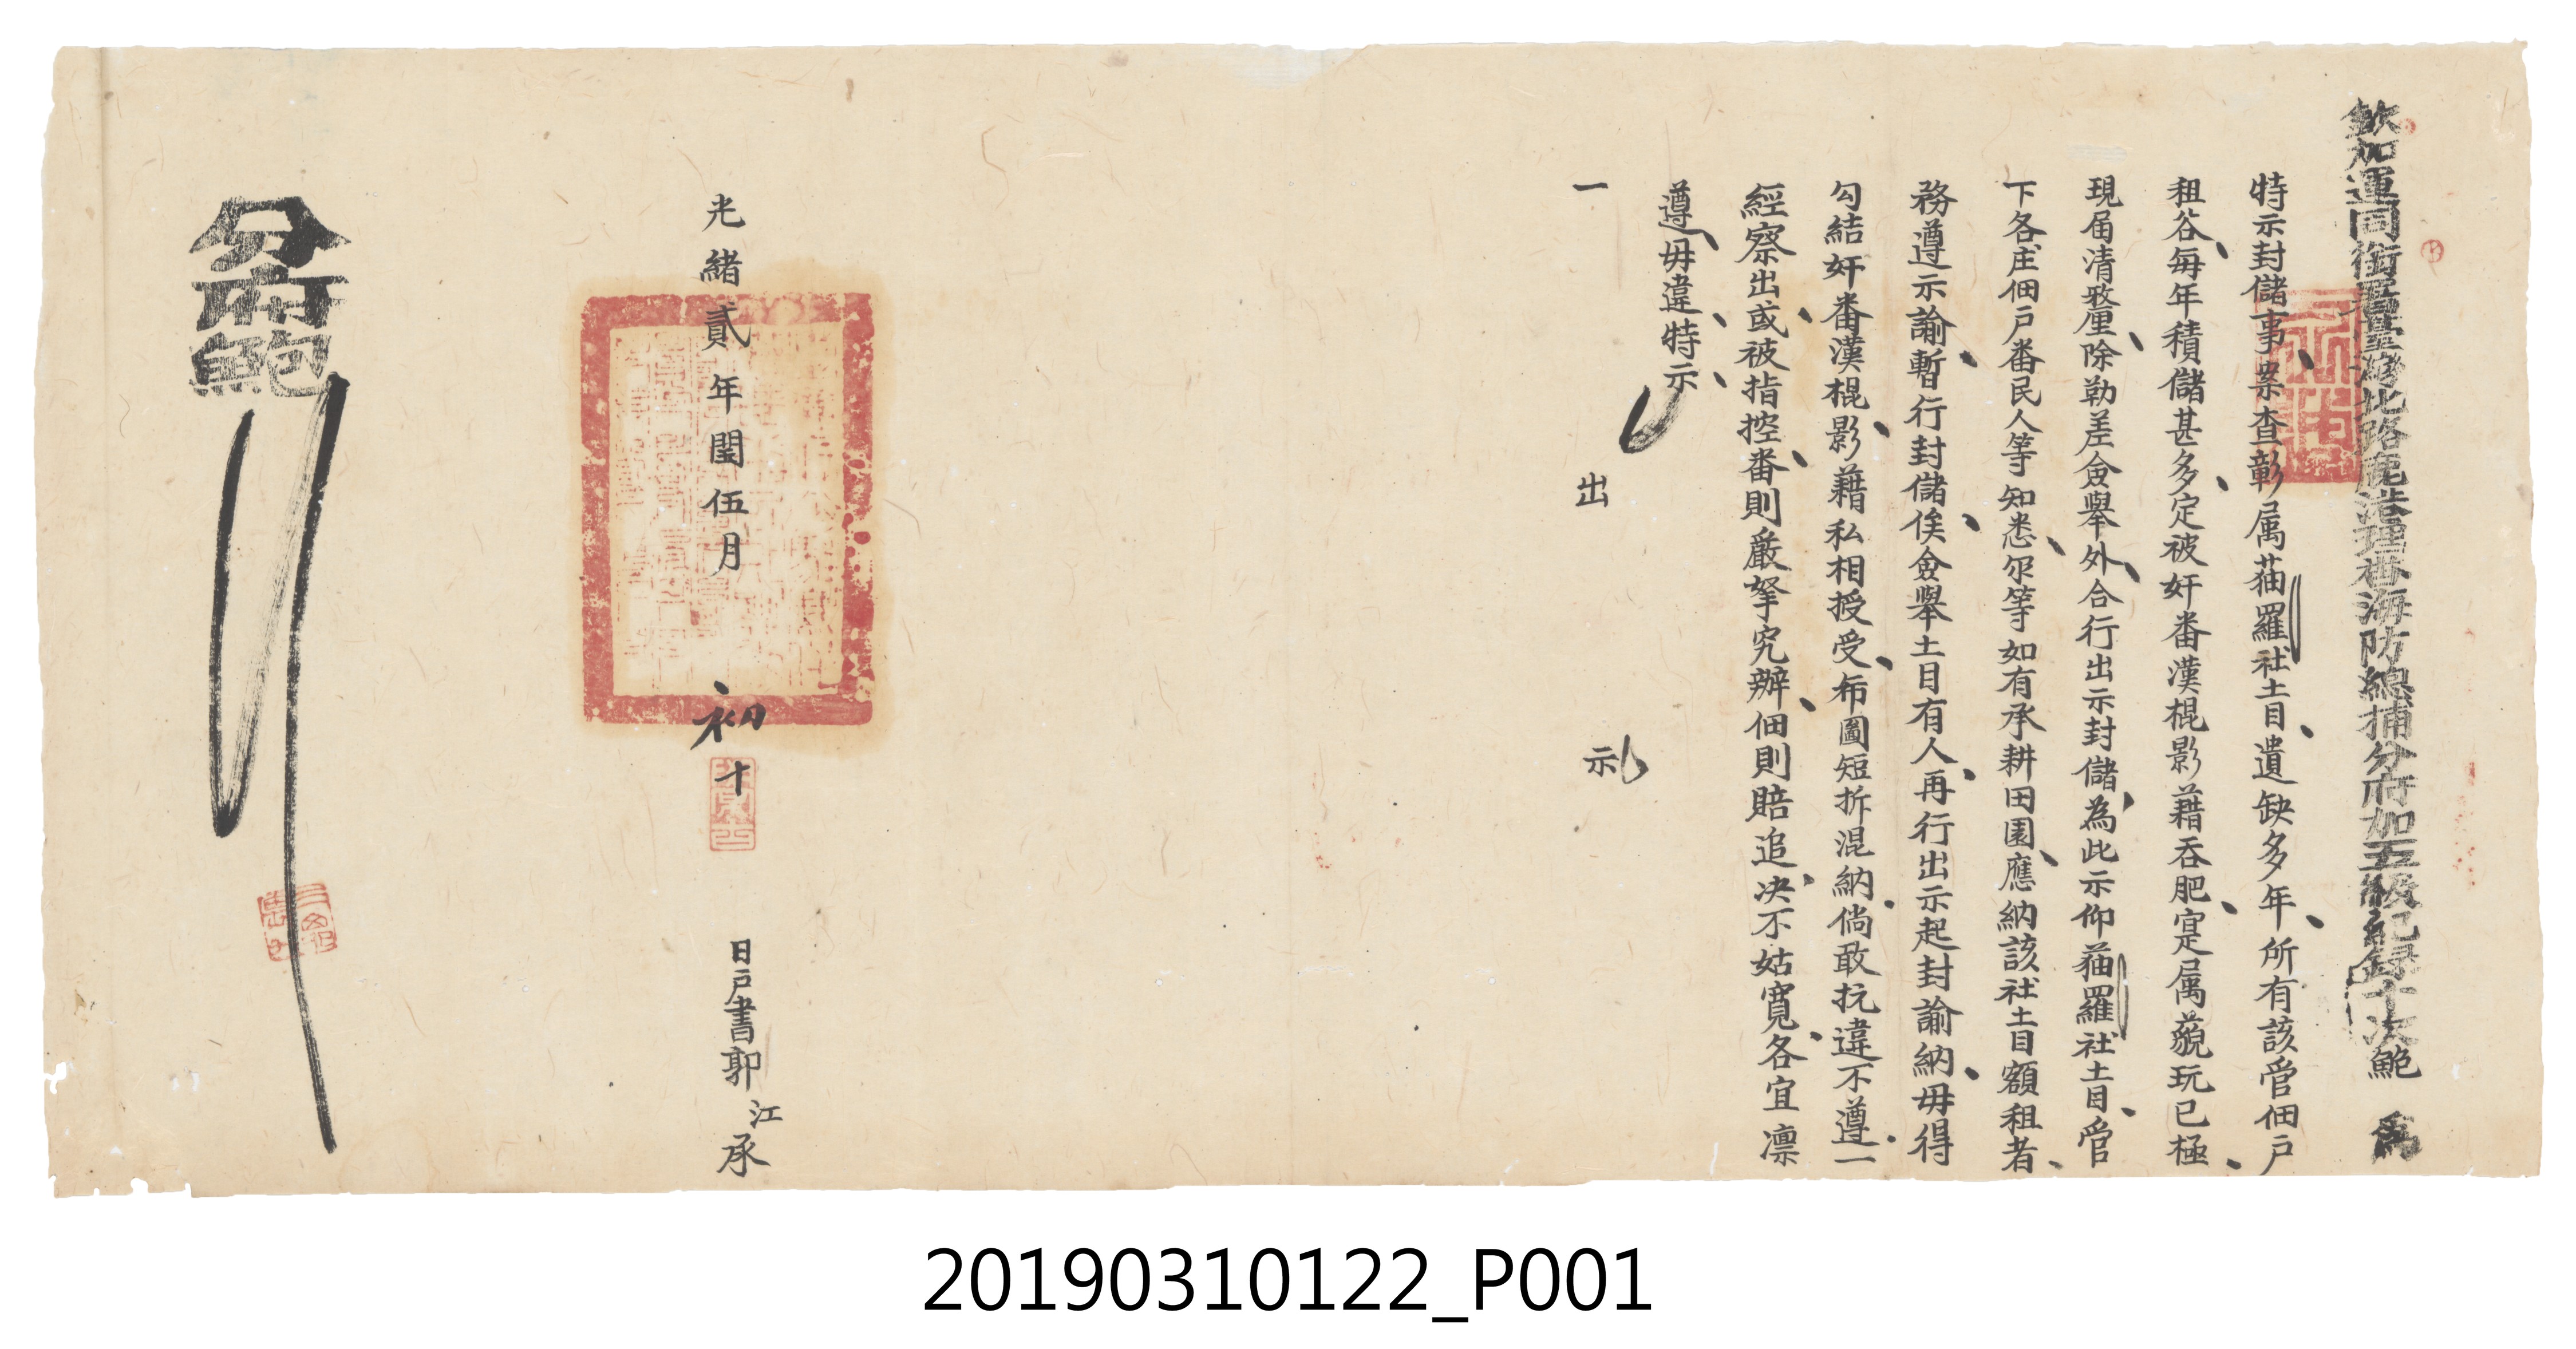 欽加運同銜署臺灣北路鹿港理番海防總捕分府加五級紀錄十次鮑　為
特示封儲事案查彰属猫羅社土目遺缺多年所有該管佃戶
租谷每年積儲甚多定被奸番漢棍影藉吞肥寔属藐玩已極
現届清整除勒差僉舉外合行出示封儲為此示仰猫羅社土目管
下各庄佃戶番民人等知悉尔等如有承耕田園應納該社土目額租者
務遵示諭暫行封儲俟僉舉土目有人再行出示起封諭納毋得
勾結奸番漢棍影藉私相授受希圖短折混納倘敢抗違不遵一
經察出或被指控番則嚴拏究辦佃則賠追决不姑寬各宜凛
遵毋違特示
一　出　示
光緒貳年閏伍月　初十　日戶書郭江承
分府鮑
20190310122_P001